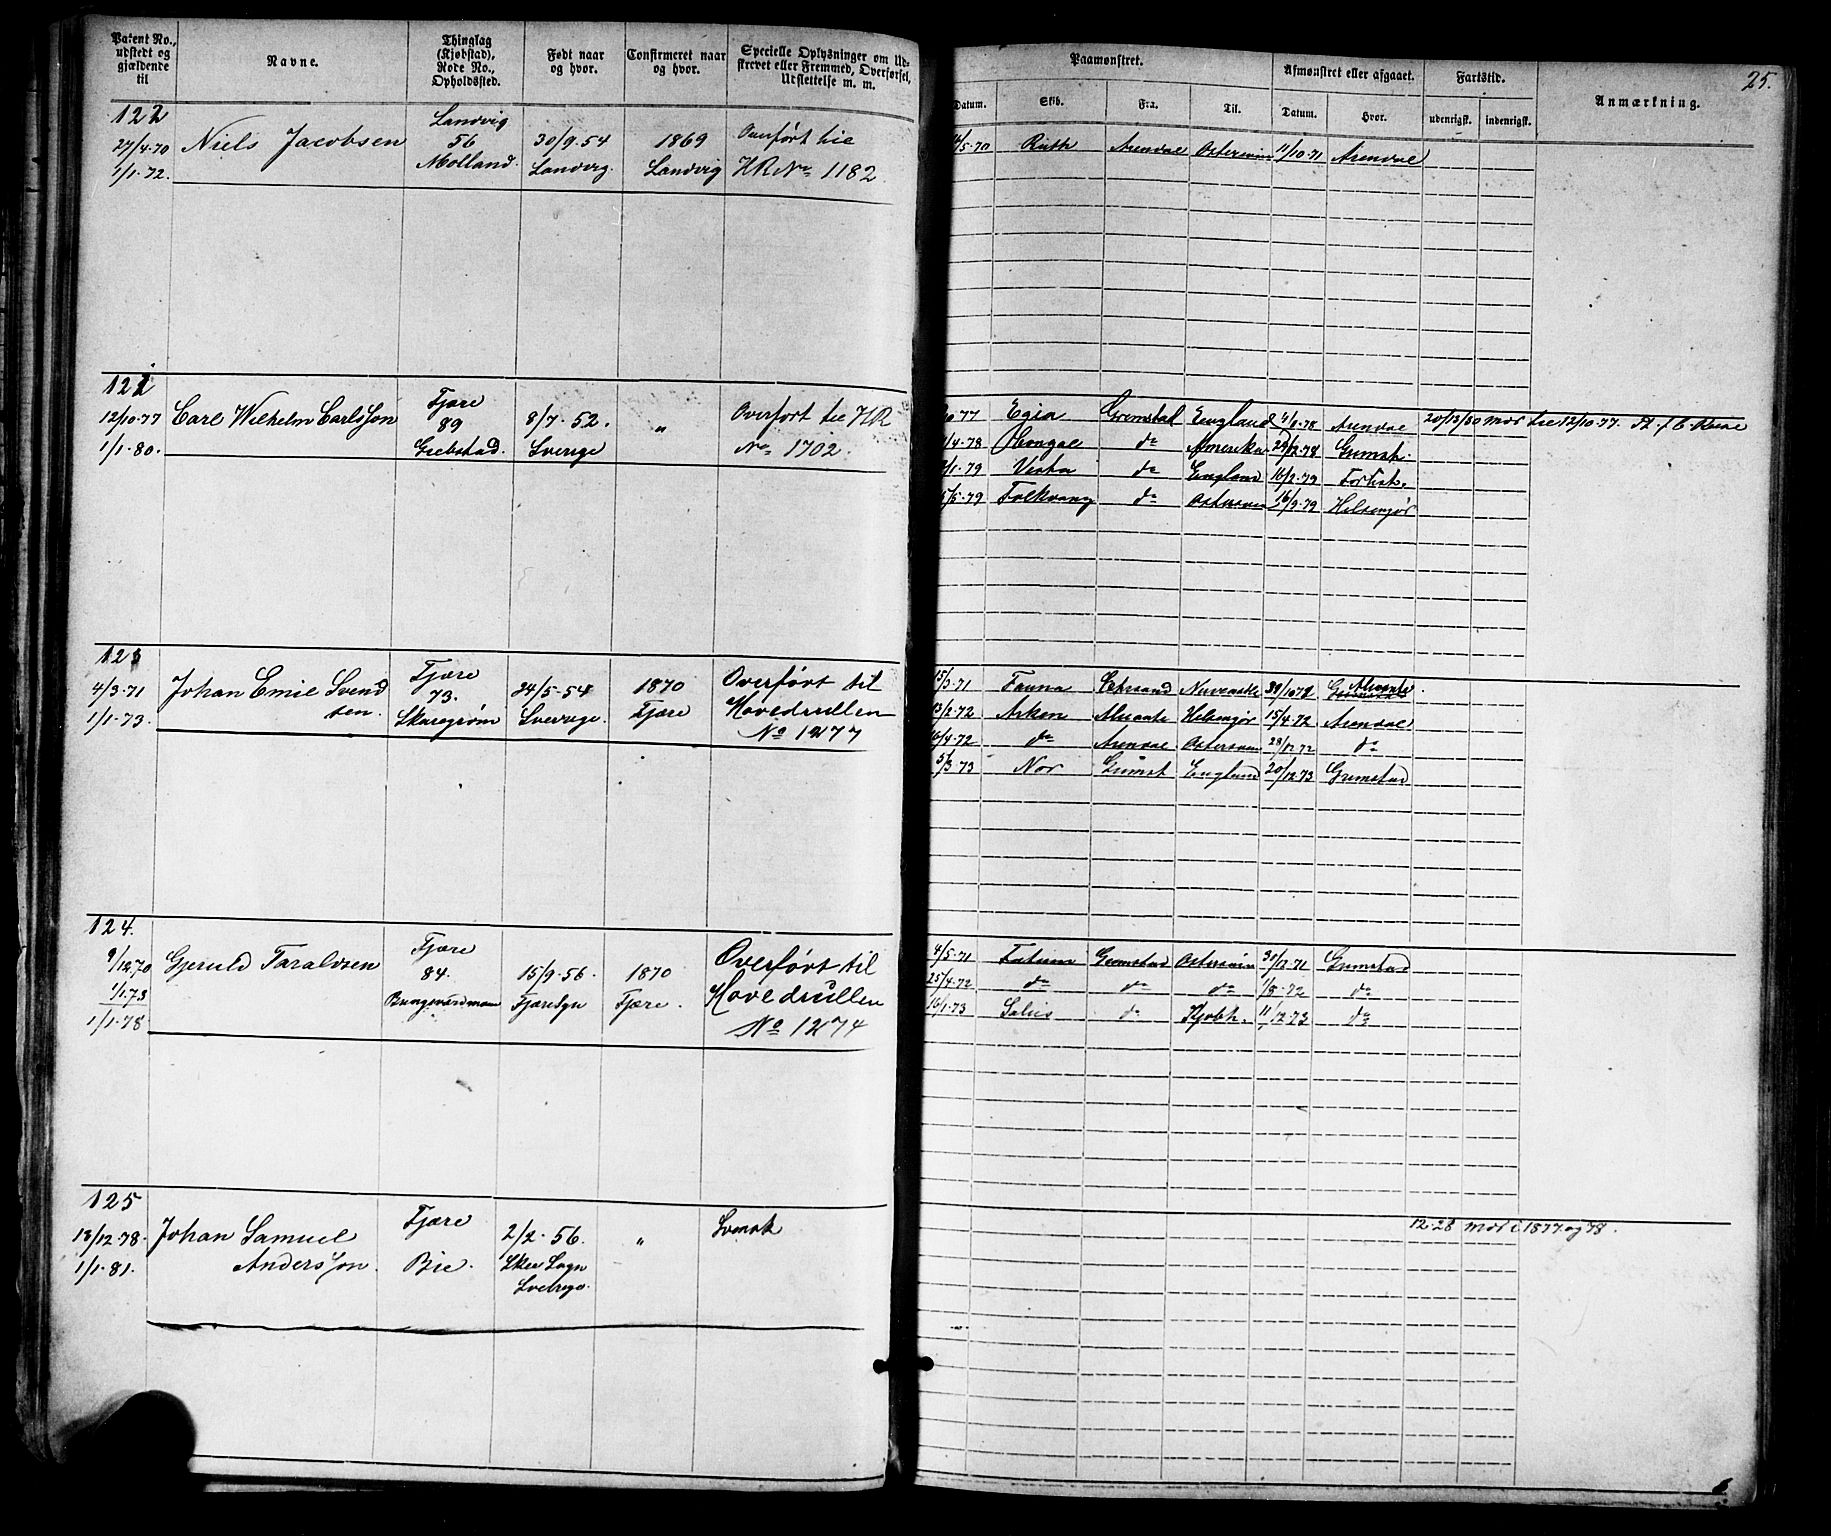 Patent No., udstedt og gjældende til
Navne.
Thinglag (Kjøbstad), Rode No., Opholdssted.
Født naar og hvor.
Confirmeret naar og hvor.
Specielle Oplysninger om Udskrevet eller Fremmed, Overførsel, Udslettelse m. m.
Paamønstret.
Afmønstret eller afgaaet.
Fartstid.
Anmærkning.
25.
Datum.
Skib.
Fra.
Til.
Datum.
Hvor.
udenrigsk.
indenrigsk.
122
27/4·70
1/1·72.
Niels Jacobsen
Landvig
56
Molland.
30/9·54
Landvig.
1869
Landvig
Overført til
HR No 1182
/5·70 Ruth Arendal Østersøen 11/10·71 Arendal
122
12/10·77
1/1·80.
Carl Wilhelm Carlsson
Fjære
89
Grebstad.
8/7·52.
Sverige
"
Overført til HR
No 1702.
10·77 Egia Grimstad England 4/9·78 Arendal 20/13/80 mdr til 12/10·77.
/4·78 do Amerika 29/12·78 Grimst.
/1·79 Vesta do England 16/2·79
5/5·79 Folkvang do Østersøen 16/9·79 Helsingør
123
4/3·71
1/1·73.
Johan Emil Svend
sen.
Fjære
73.
Skaregrøm
24/5·54
Sverige.
1870
Fjære
Overført til
Hovedrullen
No 1277
15/3·71 Fauna Alicante
13/2·72 Arken Alicante Helsingør 15/4·72 Arendal
/4·72 do Arendal Østersøen 28/12·72 do
5/3·73 Nor Grimst England 20/12·73 Grimstad
124.
9/12·70
1/1·73
1/1·78.
Gjeruld Taraldsen
Fjære
84.
15/9·56.
1870
Fjære.
Overført til
Hovedrullen
No 1274
4/5·71 Grimstad Østersøen 31/12·71 Grimstad
25/4·72 do do do 1/8·72 do
16/1·73 do Kjøbh. 11/12·73 do
125
13/12·78.
1/1·81.
Johan Samuel
Andersson.
Fjære
Bie.
2/2·56.
"
Svensk
12·28 mdr i 1877 og 78.